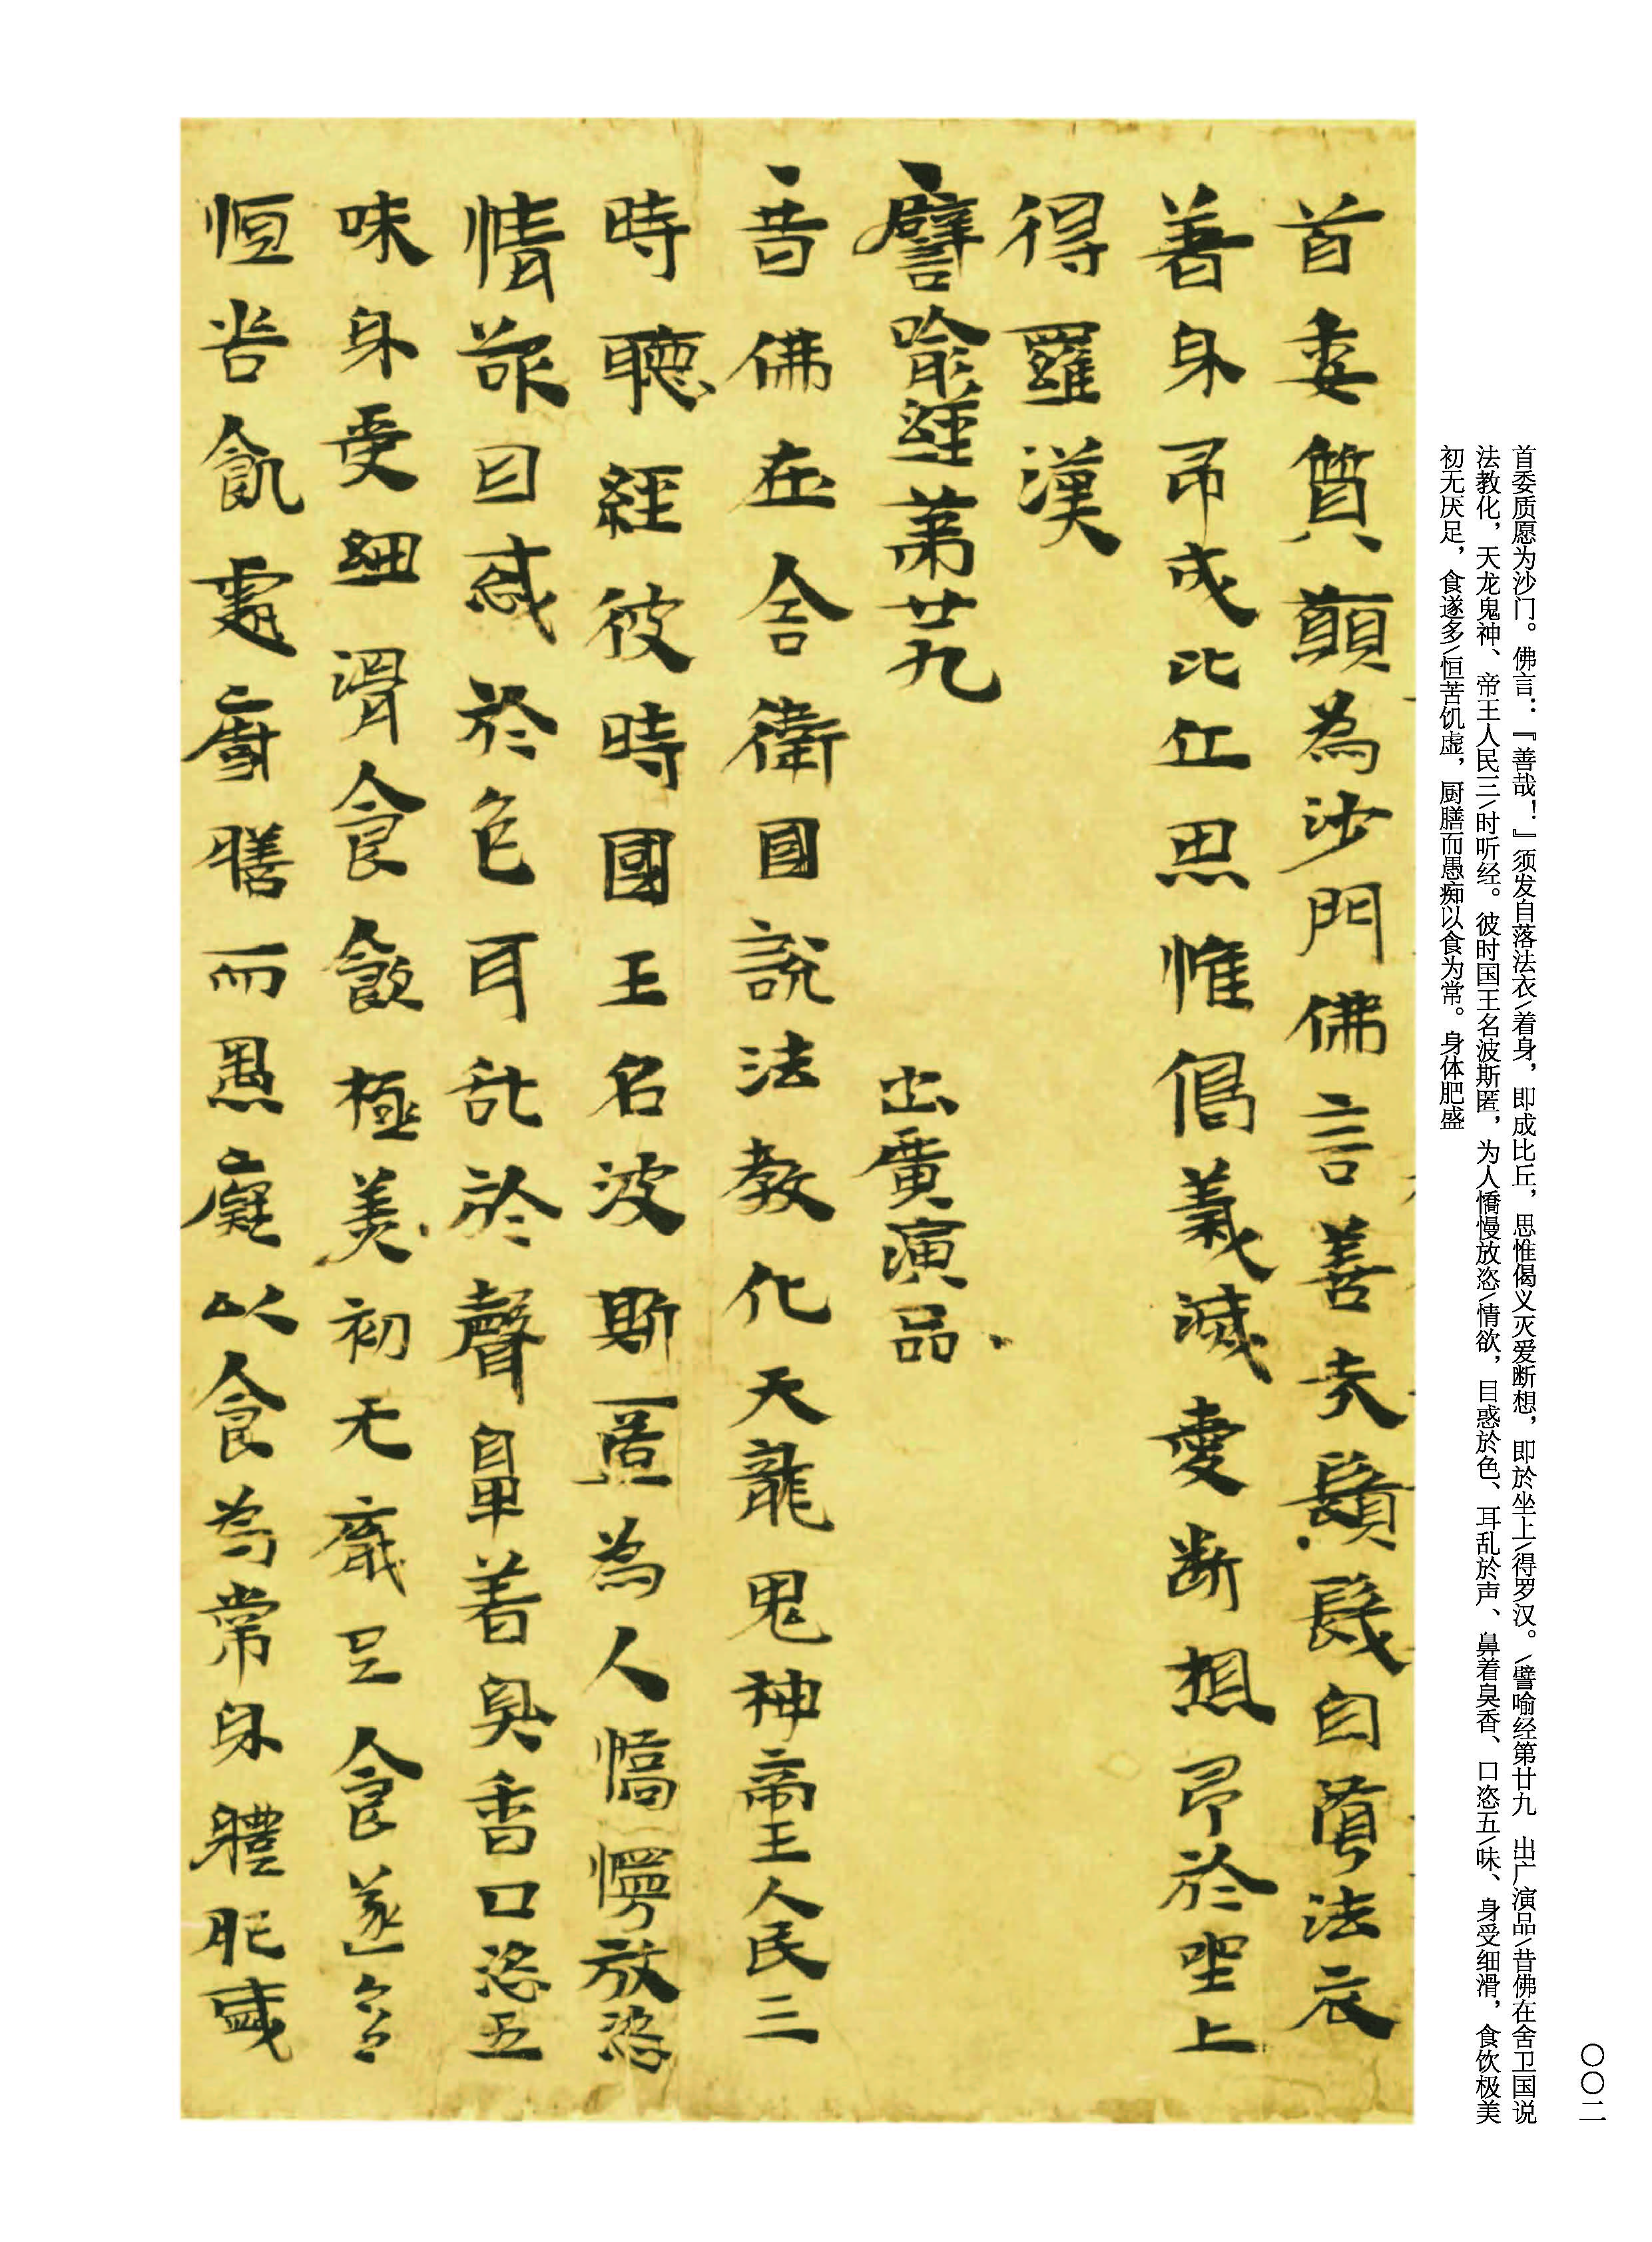 〇〇二
首委质愿为沙门。佛言：『善哉！』须发自落法衣/着身，即成比丘，思惟偈义灭爱断想，即於坐上/得罗汉。/譬喻经第廿九 出广演品/昔佛在舍卫国说
法教化，天龙鬼神、帝王人民三/时听经。彼时国王名波斯匿，为人憍慢放恣/情欲，目惑於色、耳乱於声、鼻着臭香、口恣五/味、身受细滑，食饮极美
初无厌足，食遂多/恒苦饥虚，厨膳而愚痴以食为常。身体肥盛
首委質願為沙門佛言善哉鬚髮自落法衣
著身即成比丘思惟偈義滅愛断想即於坐上
得羅漢
譬喻經第廿九 出廣演品
昔佛在舍衛國說法教化天龍鬼神帝王人民三
時聽經彼時國王名波斯匿為人憍慢放恣
情欲目惑於色耳乱於聲鼻着臭香口恣五
味身受細滑食飲極美初无厭足食遂多
恒苦飢虛廚膳而愚癡以食為常身體肥盛